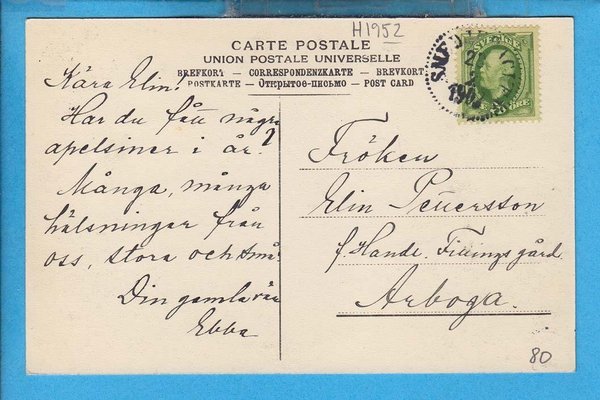 H1952
CARTE POSTALE
UNION POSTALE UNIVERSELLE
BREFKORT — CORRESPONDENZKARTE — BREVKORT
POSTKARTE — Открытое письмо — POST CARD
SVERIGE
FEM ÖRE
Kära Elin!
Har du fått några
apelsiner i år?
Många, många
hälsningar från
oss, stora och små.
Din gamla vän
Ebba
Fröken
Elin Pettersson
f. Hande. Fillingsgård.
Arboga.
80